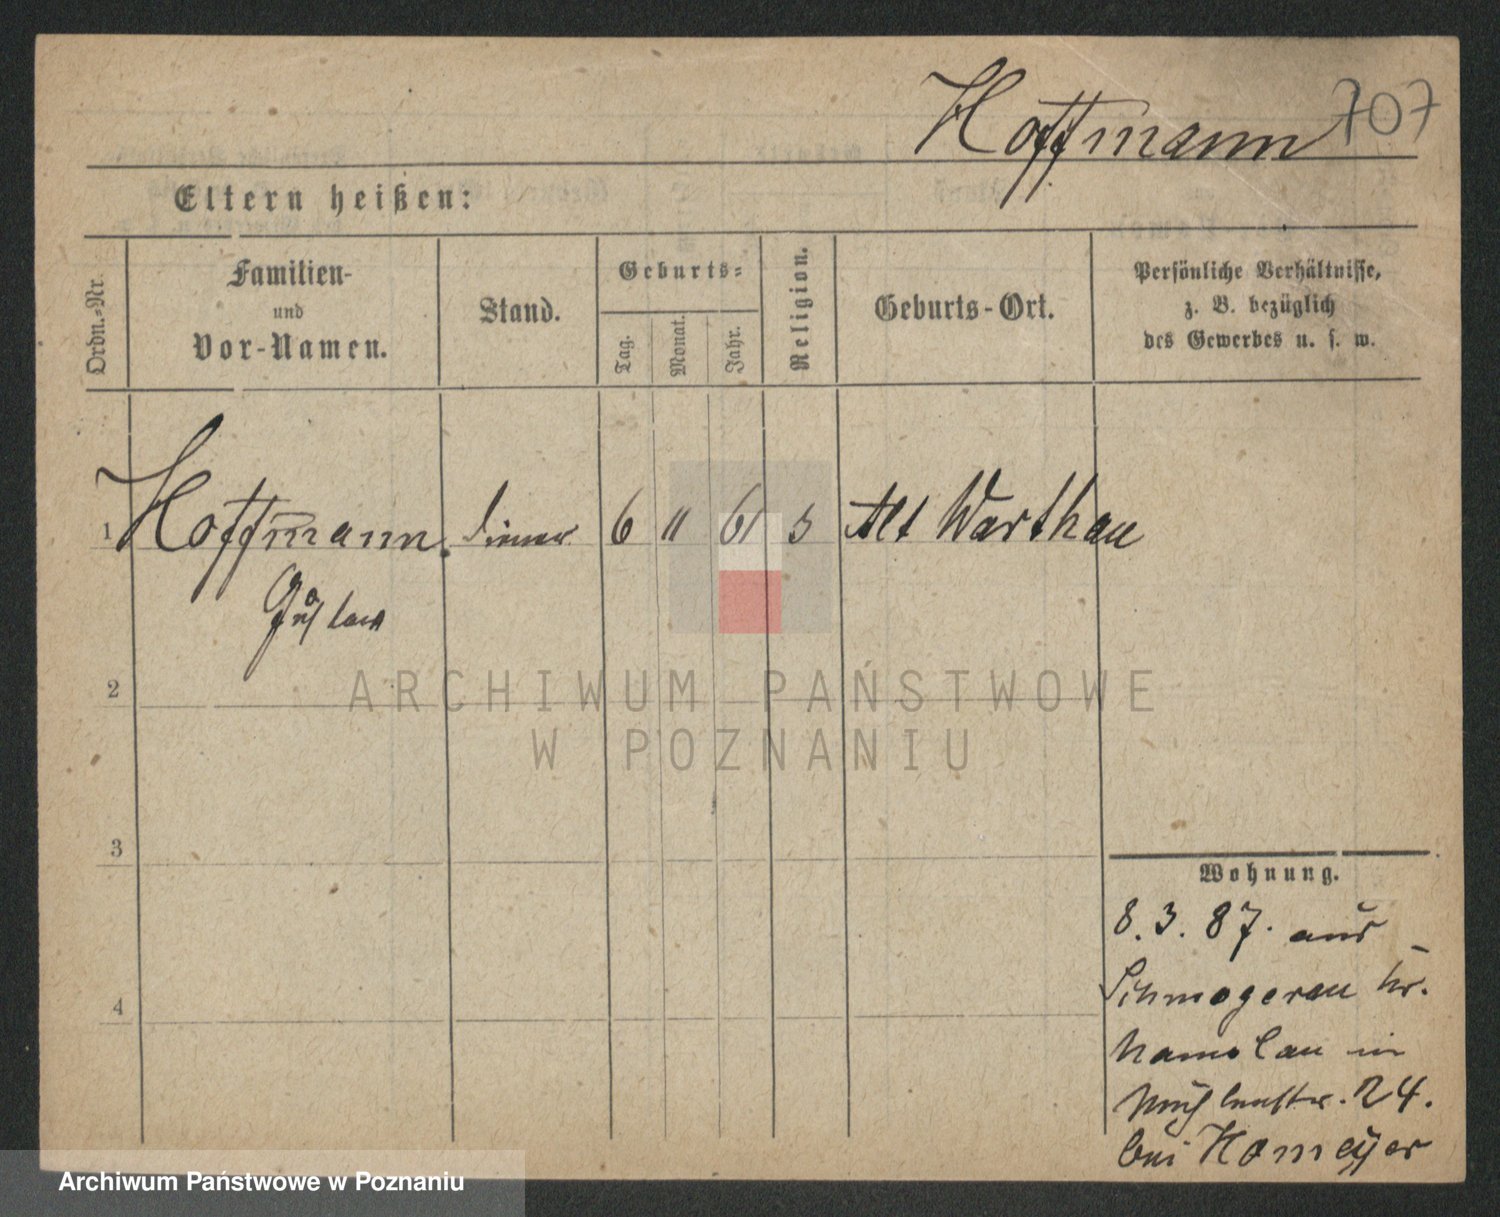 Hoffmann 707
Eltern heißen:
Ordn.-Nr.
Familien-
und
Vor-Namen.
Stand.
Geburts-
Tag.
Monat.
Jahr.
Religion.
Geburts-Ort.
Persönliche Verhältnisse,
z. B. bezüglich
des Gewerbes u. s. w.
1 Hoffmann Diener 6 11 61 Alt Warthau
Gustav
2
3
4
Wohnung.
8.3.87. aus
Schmogerau Kr.
Namslau in
Mühlenstr. 24.
bei Homeyer
ARCHIWUM PAŃSTWOWE
W POZNANIU
Archiwum Państwowe w Poznaniu